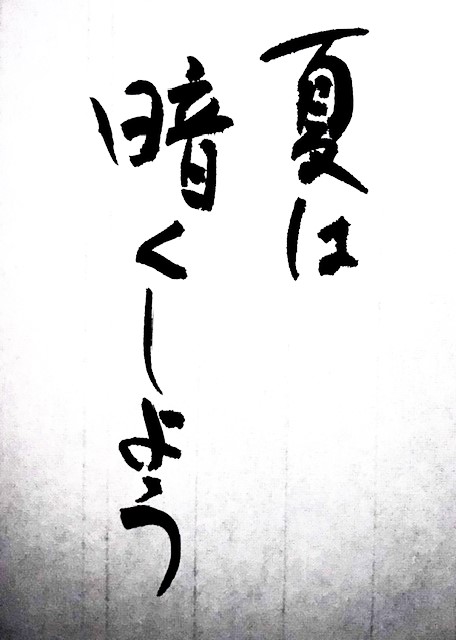 夏は
暗くしよう